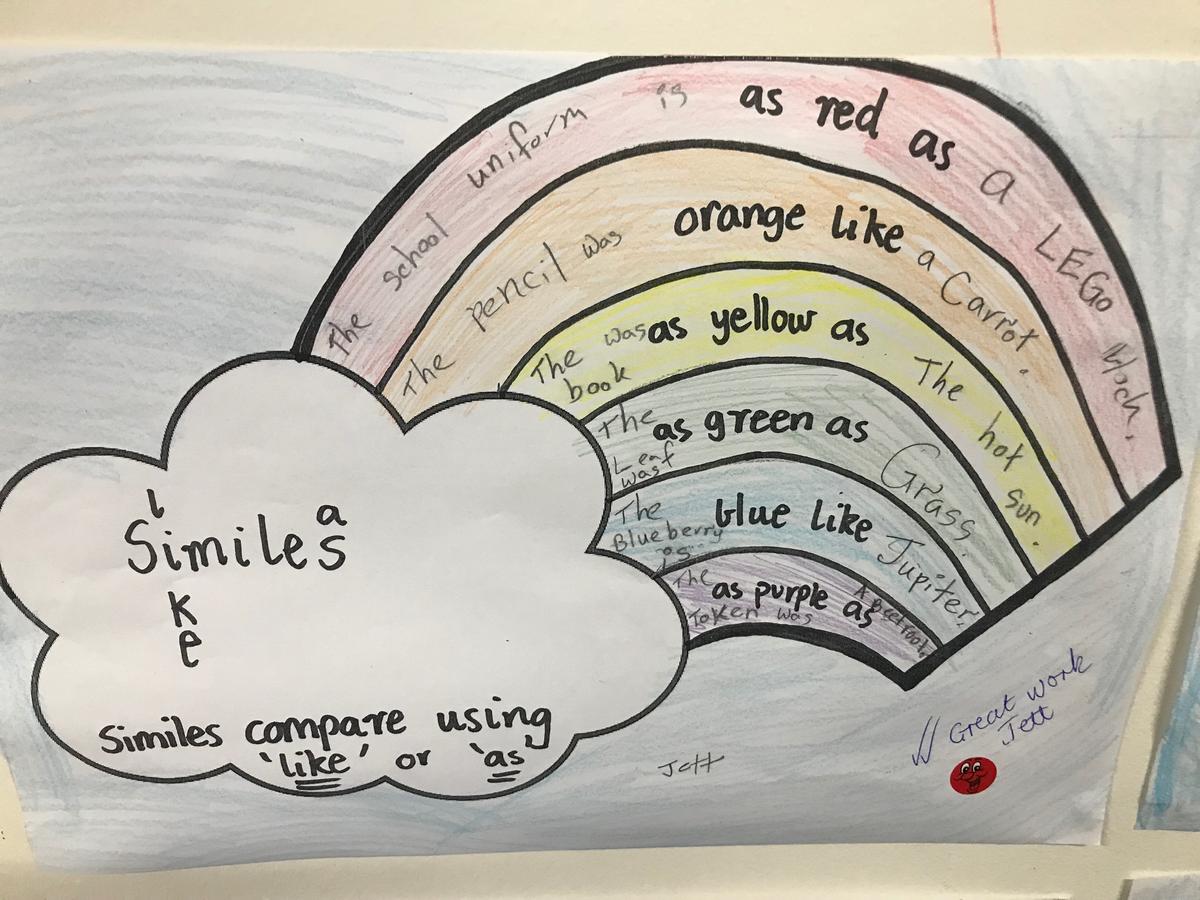 The school uniform is as red as a LEGO block.
The pencil was orange like a Carrot.
The book was as yellow as The hot sun.
The Leaf was as green as Grass.
The Blueberry is blue like Jupiter.
The Token was as purple as A Beetroot.
l a
Similes
k
e
Similes compare using
'like' or 'as'
Jett
Great work
Jett